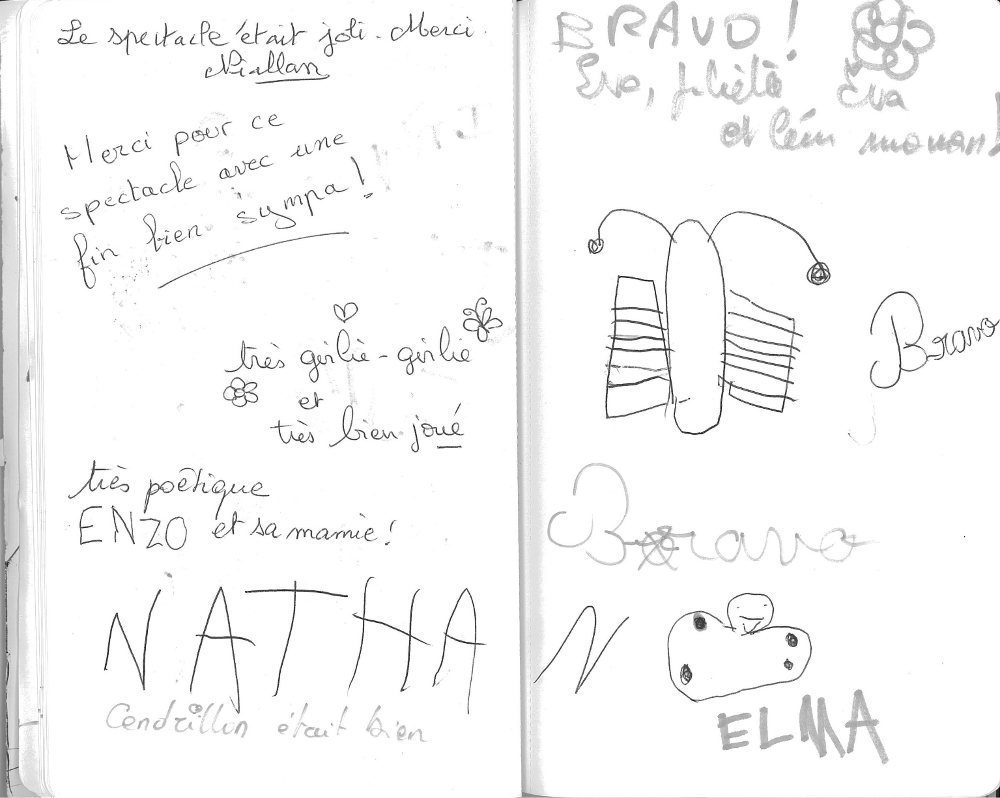 Le spectacle était joli. Merci.
Merci pour ce
spectacle avec une
fin bien sympa !
très girlie-girlie
et
très bien joué
très poêtique
ENZO et sa mamie !
NATHA
Cendrillon était bien
BRAVO !
Eva, Juliette Eva
et leur maman !
Bravo
Bravo
N
ELMA